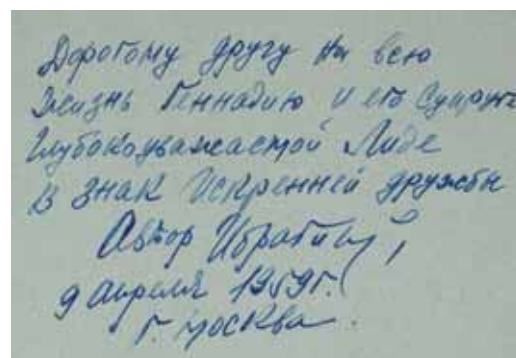 Дорогому другу на всю
жизнь Геннадию и его супруге
Глубокоуважаемой Лиде
в знак искренней дружбы
Автор
9 апреля 1959г.
г. Москва.